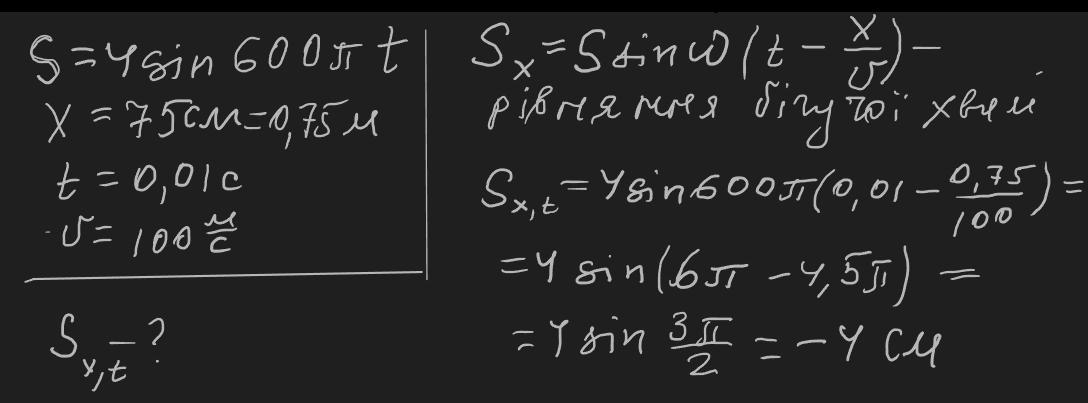 S = 4 sin 600π t
x = 75 см = 0,75 м
t = 0,01 с
υ = 100 м/с
S x,t – ?
S x = S sin ω (t – x/υ) –
рівняння біжучої хвилі
S x,t = 4 sin 600π (0,01 – 0,75/100) =
= 4 sin (6π – 4,5π) =
= 4 sin 3π/2 = – 4 см